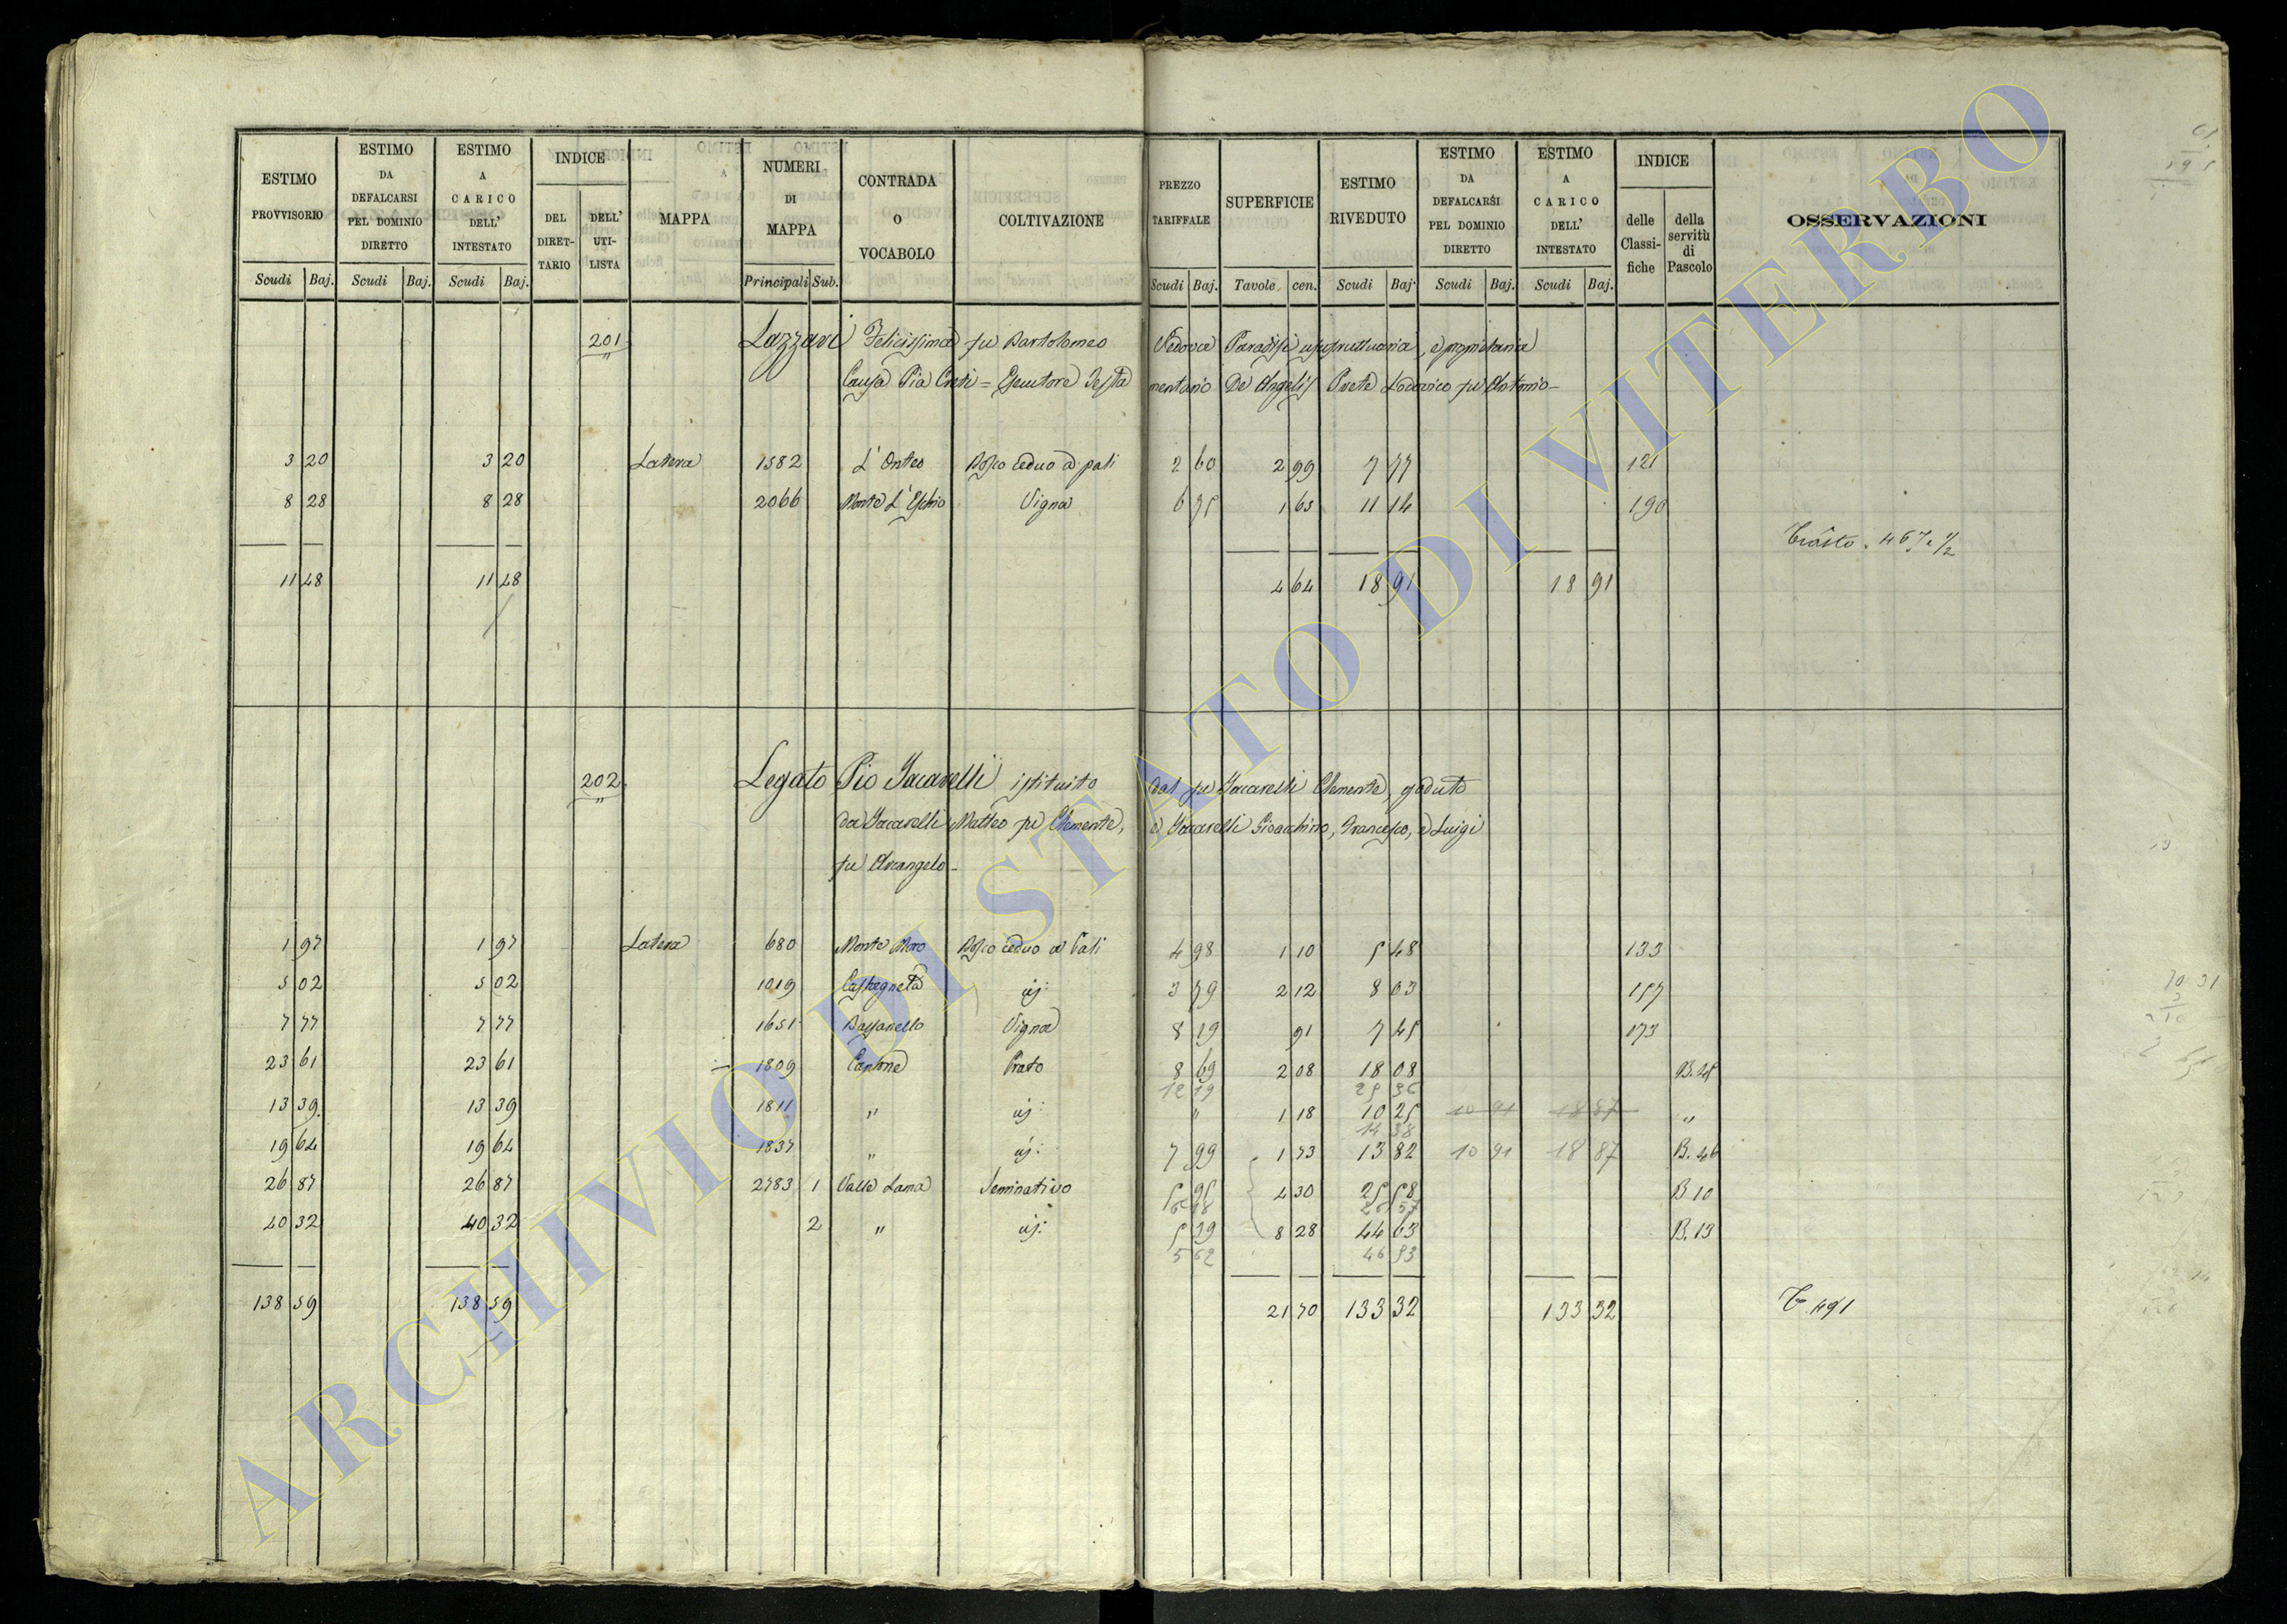 ESTIMO PROVVISORIO
ESTIMO DA DEFALCARSI PEL DOMINIO DIRETTO
ESTIMO A CARICO DELL' INTESTATO
INDICE
DEL DIRETTARIO
DELL' UTILISTA
MAPPA
NUMERI DI MAPPA
CONTRADA O VOCABOLO
COLTIVAZIONE
PREZZO TARIFFALE
SUPERFICIE
ESTIMO RIVEDUTO
ESTIMO DA DEFALCARSI PEL DOMINIO DIRETTO
ESTIMO A CARICO DELL' INTESTATO
INDICE
delle Classifiche
della servitù di Pascolo
OSSERVAZIONI
Scudi Baj. Scudi Baj. Scudi Baj. Principali Sub. Scudi Baj. Tavole cen. Scudi Baj. Scudi Baj. Scudi Baj.
201 Lazzari Felicissima fu Bartolomeo Vedova Paradisi usufruttuaria, e proprietaria
Causa Pia Creti = Esecutore Testamentario De Angelis Prete Lodovico fu Antonio
3 20 3 20 Latera 1582 L'Onteo Bosco ceduo a pali 2 60 2 99 7 77 121
8 28 8 28 2066 Monte L'Eschio Vigna 6 75 1 65 11 14 190
11 48 11 48 4 64 18 91 18 91
202 Legato Pio Jacarelli istituito dal fu Jacarelli Clemente, goduto
da Jacarelli Matteo fu Clemente, e Jacarelli Gioacchino, Francesco, e Luigi
fu Arcangelo
1 97 1 97 Latera 680 Monte Moro Bosco ceduo a Pali 4 98 1 10 5 48 133
5 02 5 02 1019 Castagneta id: 3 79 2 12 8 03 157
7 77 7 77 1651 Bassanello Vigna 8 19 91 7 45 173
23 61 23 61 1809 Cantone Prato 8 69 2 08 18 08 B. 45
12 19 25 36
13 39 13 39 1811 " id: " 1 18 10 25 10 91 18 87 "
14 38
19 64 19 64 1837 " id: 7 99 1 73 13 82 10 91 18 87 B. 46
26 87 26 87 2783 1 Valle Lama Seminativo 5 95 4 30 25 58 B 10
6 18 26 57
40 32 40 32 2 " id: 5 39 8 28 44 63 B. 13
5 62 46 53
138 59 138 59 21 70 133 32 133 32 T. 491
ARCHIVIO DI STATO DI VITERBO